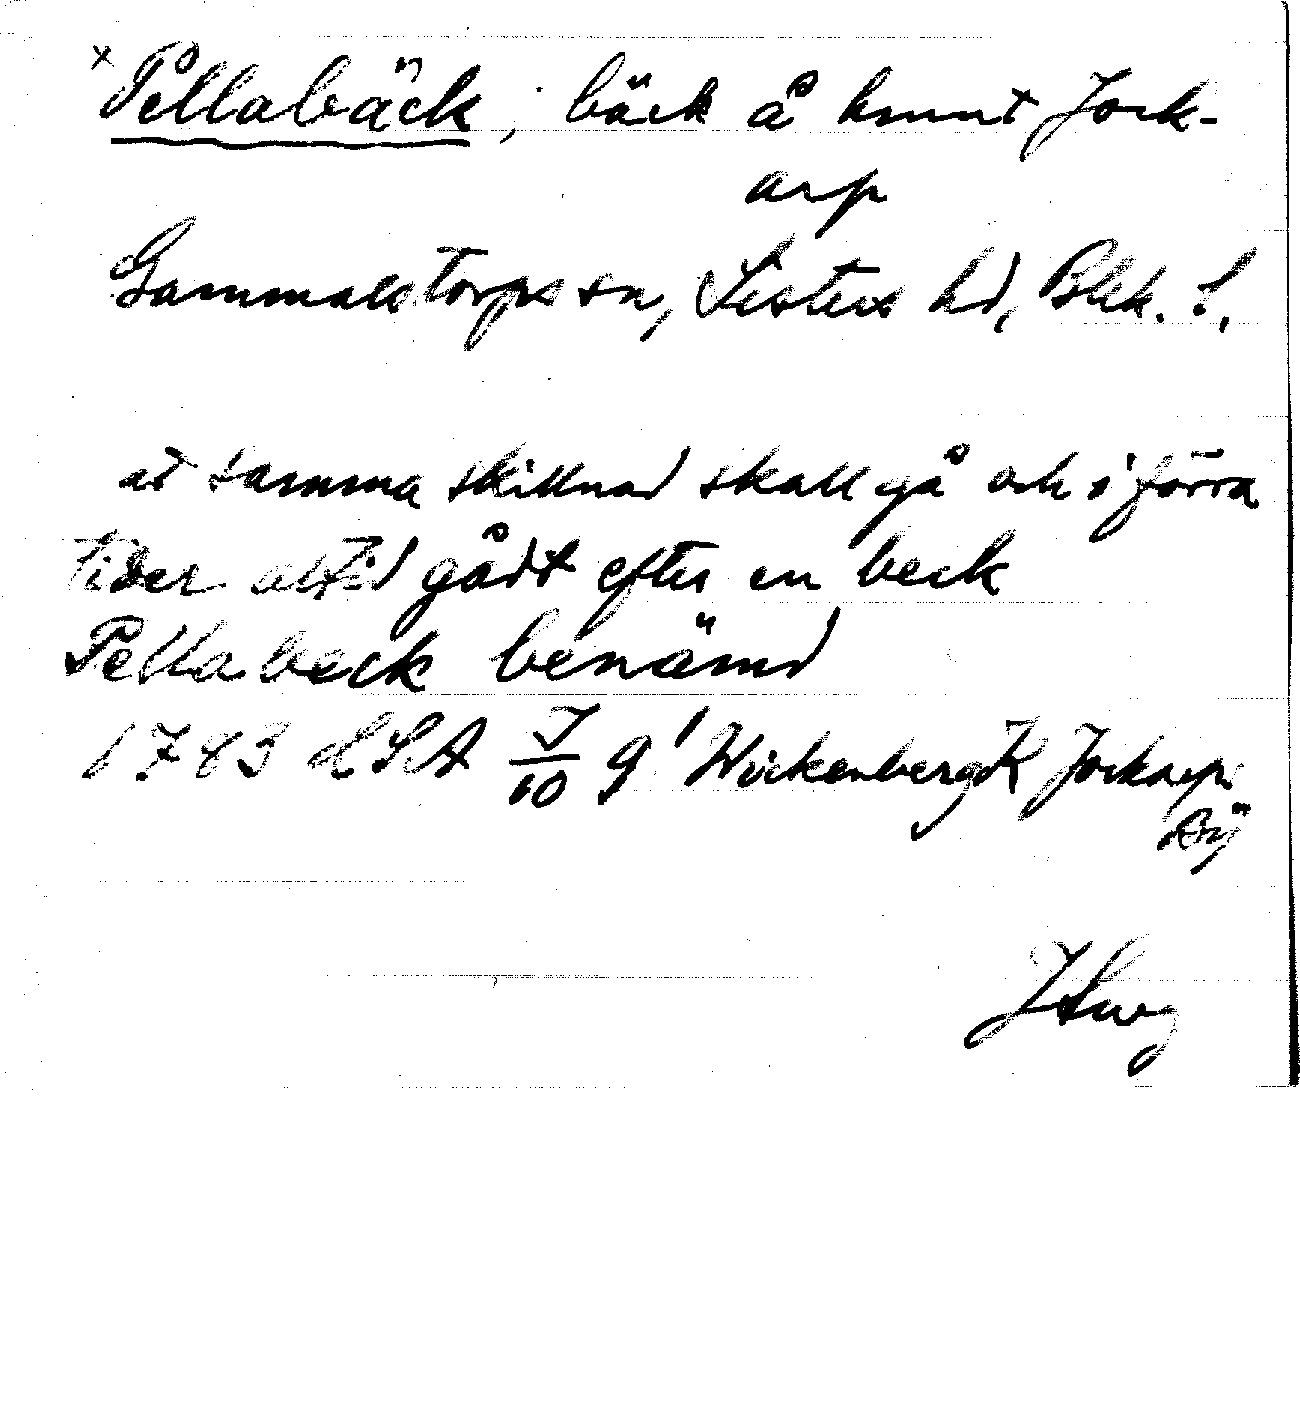 x Pellabäck; bäck å hmnt Jock-
arp
Gammalstorps sn, Listers hd, Blek. l.
at samma skillnad skall gå och i förra
tider altid gådt efter en beck
Pellabeck benämd
1783 LSA 7/10 g' Wirkenberg Jockarp
By